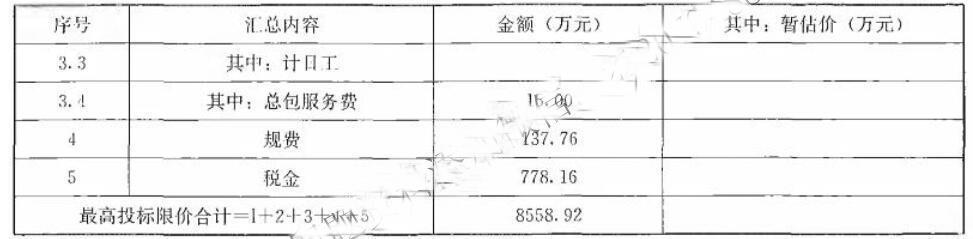 序号 汇总内容 金额（万元） 其中：暂估价（万元）
3.3 其中：计日工
3.4 其中：总包服务费 16.00
4 规费 137.76
5 税金 778.16
最高投标限价合计=1+2+3+4+5 8558.92